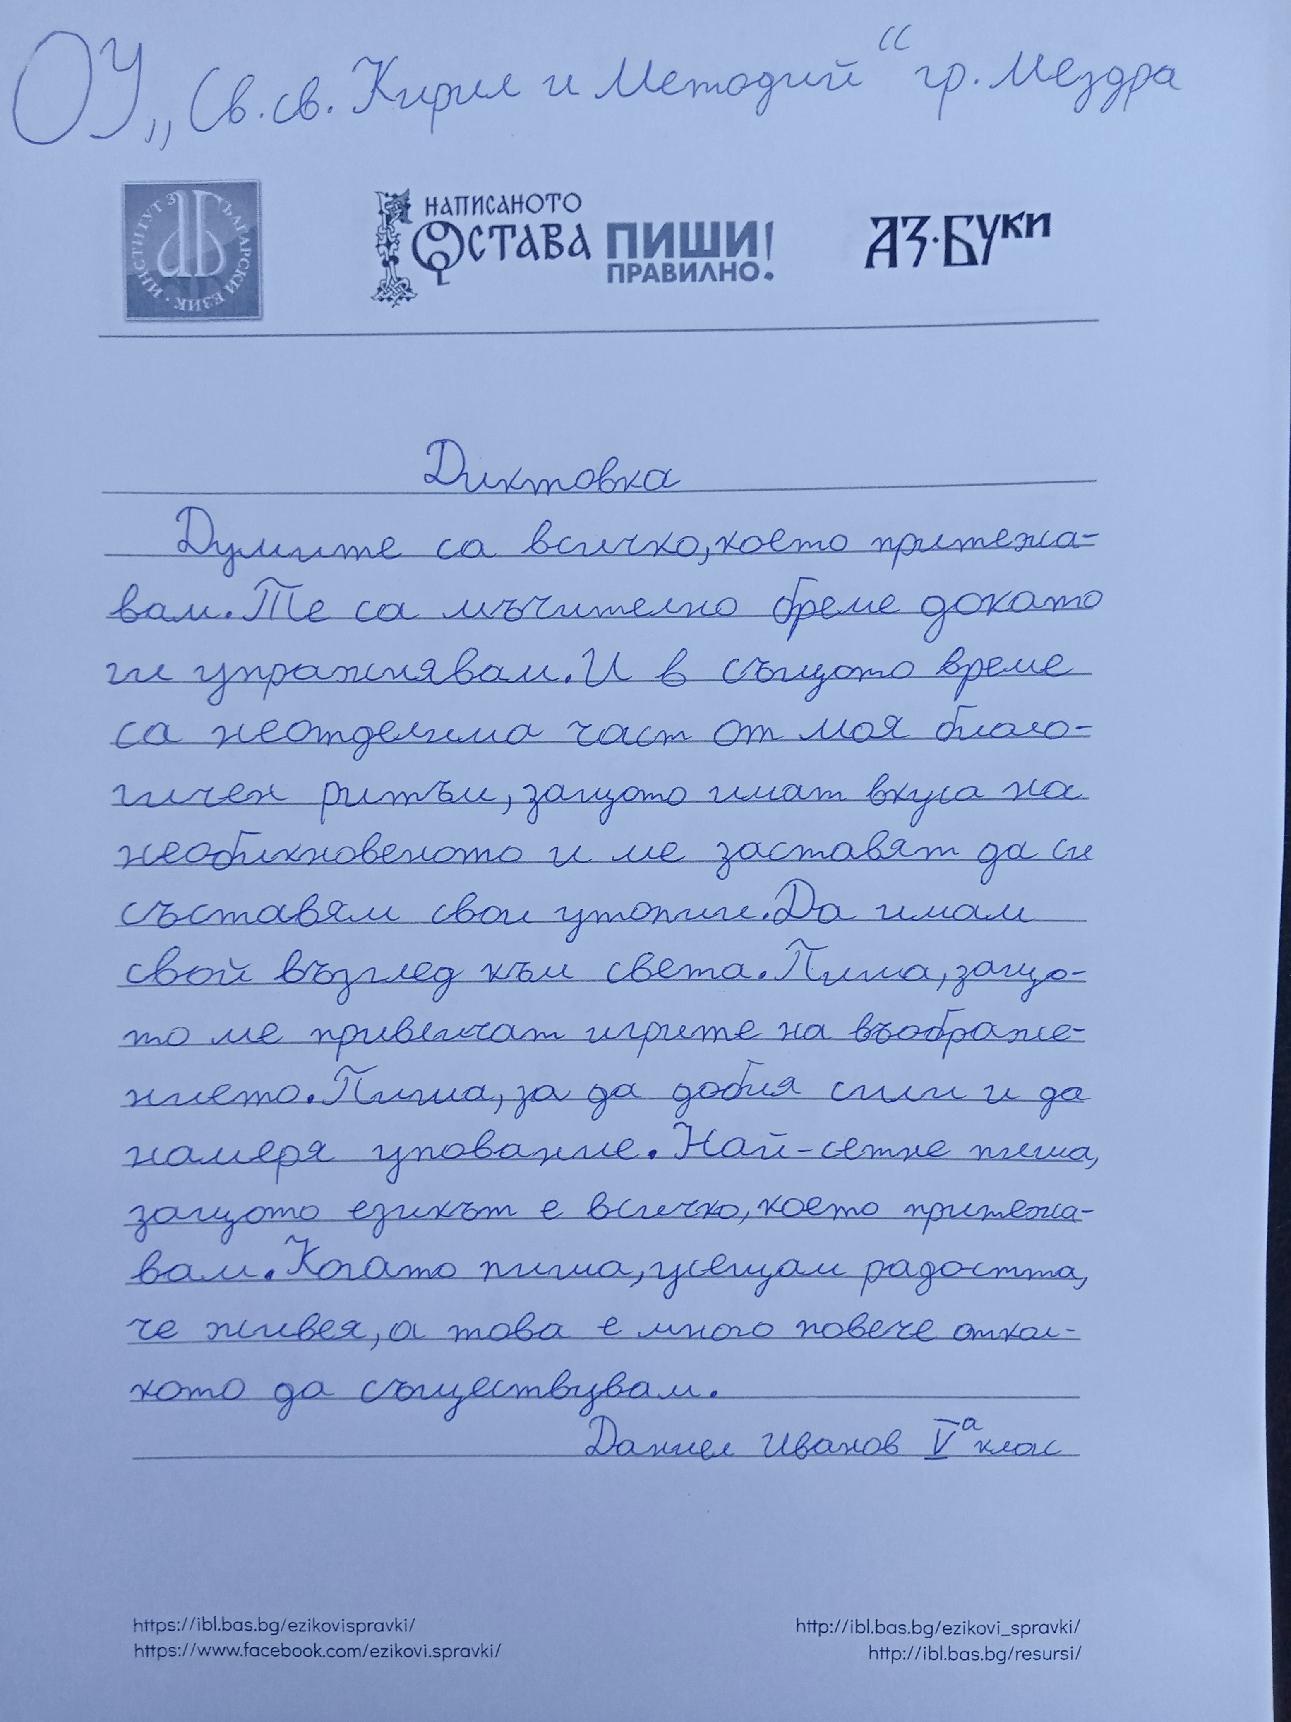 ОУ „Св. св. Кирил и Методий“ гр. Мездра
ИНСТИТУТ ЗА БЪЛГАРСКИ ЕЗИК
НАПИСАНОТО
ОСТАВА ПИШИ
ПРАВИЛНО!
АЗ·БУКИ
Диктовка
Думите са всичко, което притежа-
вам. Те са мъчително бреме докато
ги упражнявам. И в същото време
са неотделима част от моя биоло-
гичен ритъм, защото имат вкуса на
необикновеното и ме заставят да си
съставям свои утопии. Да имам
свой възглед към света. Пиша, защо-
то ме привличат игрите на въображе-
нието. Пиша, за да добия сили и да
намеря упование. Най-сетне пиша,
защото езикът е всичко, което притежа-
вам. Когато пиша, усещам радостта,
че живея, а това е много повече откол-
кото да съществувам.
Даниел Иванов V а клас
https://ibl.bas.bg/ezikovispravki/ http://ibl.bas.bg/ezikovi_spravki/
https://www.facebook.com/ezikovi.spravki/ http://ibl.bas.bg/resursi/